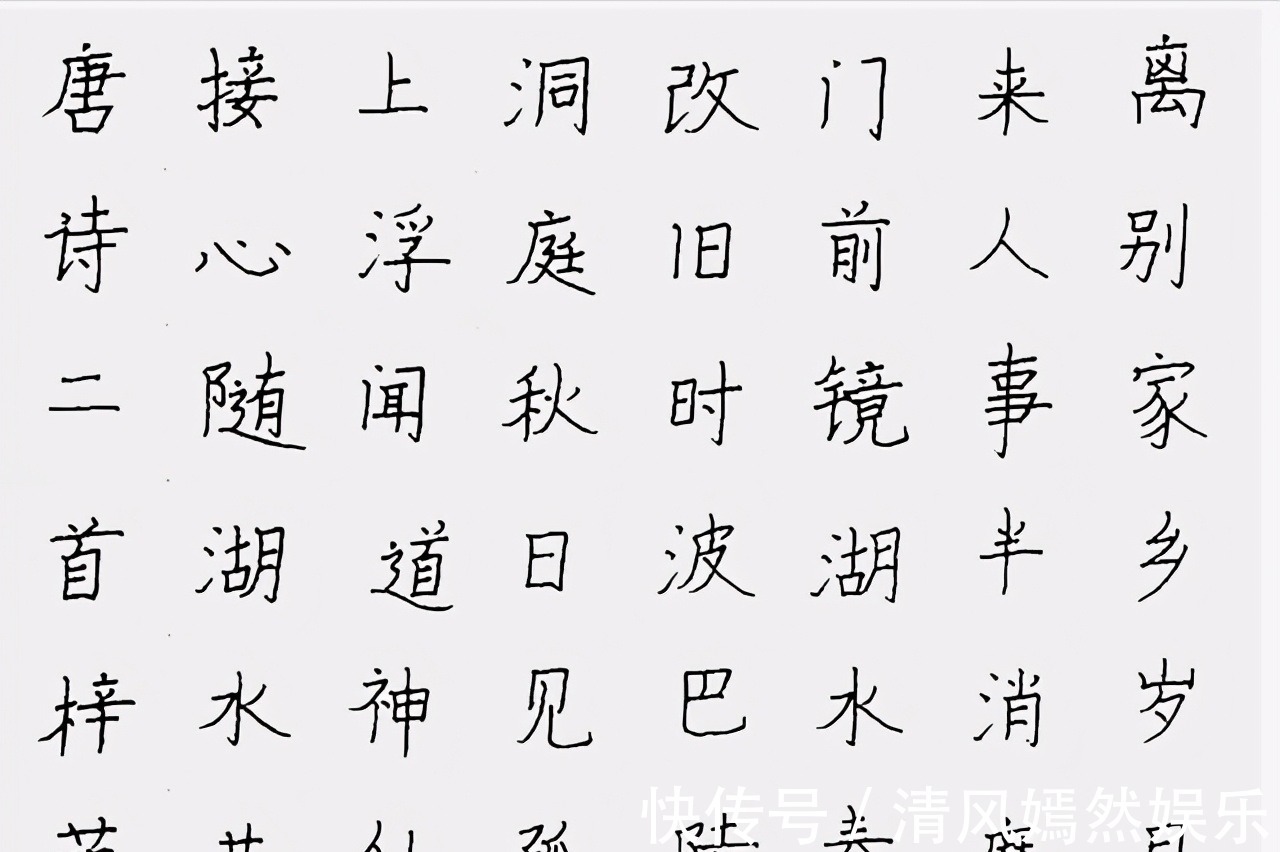 离别家乡岁
来人事半消
门前镜湖水
改旧时波巴
洞庭秋日见
上浮闻道神
接心随湖水
唐诗二首梓
快传号 / 清风嫣然娱乐